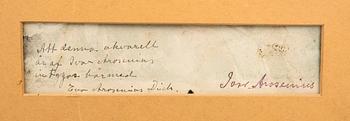 Att denna akvarell
är af Ivar Arosenius
intygas härmed
Eva Arosenius Dich.
Ivar Arosenius